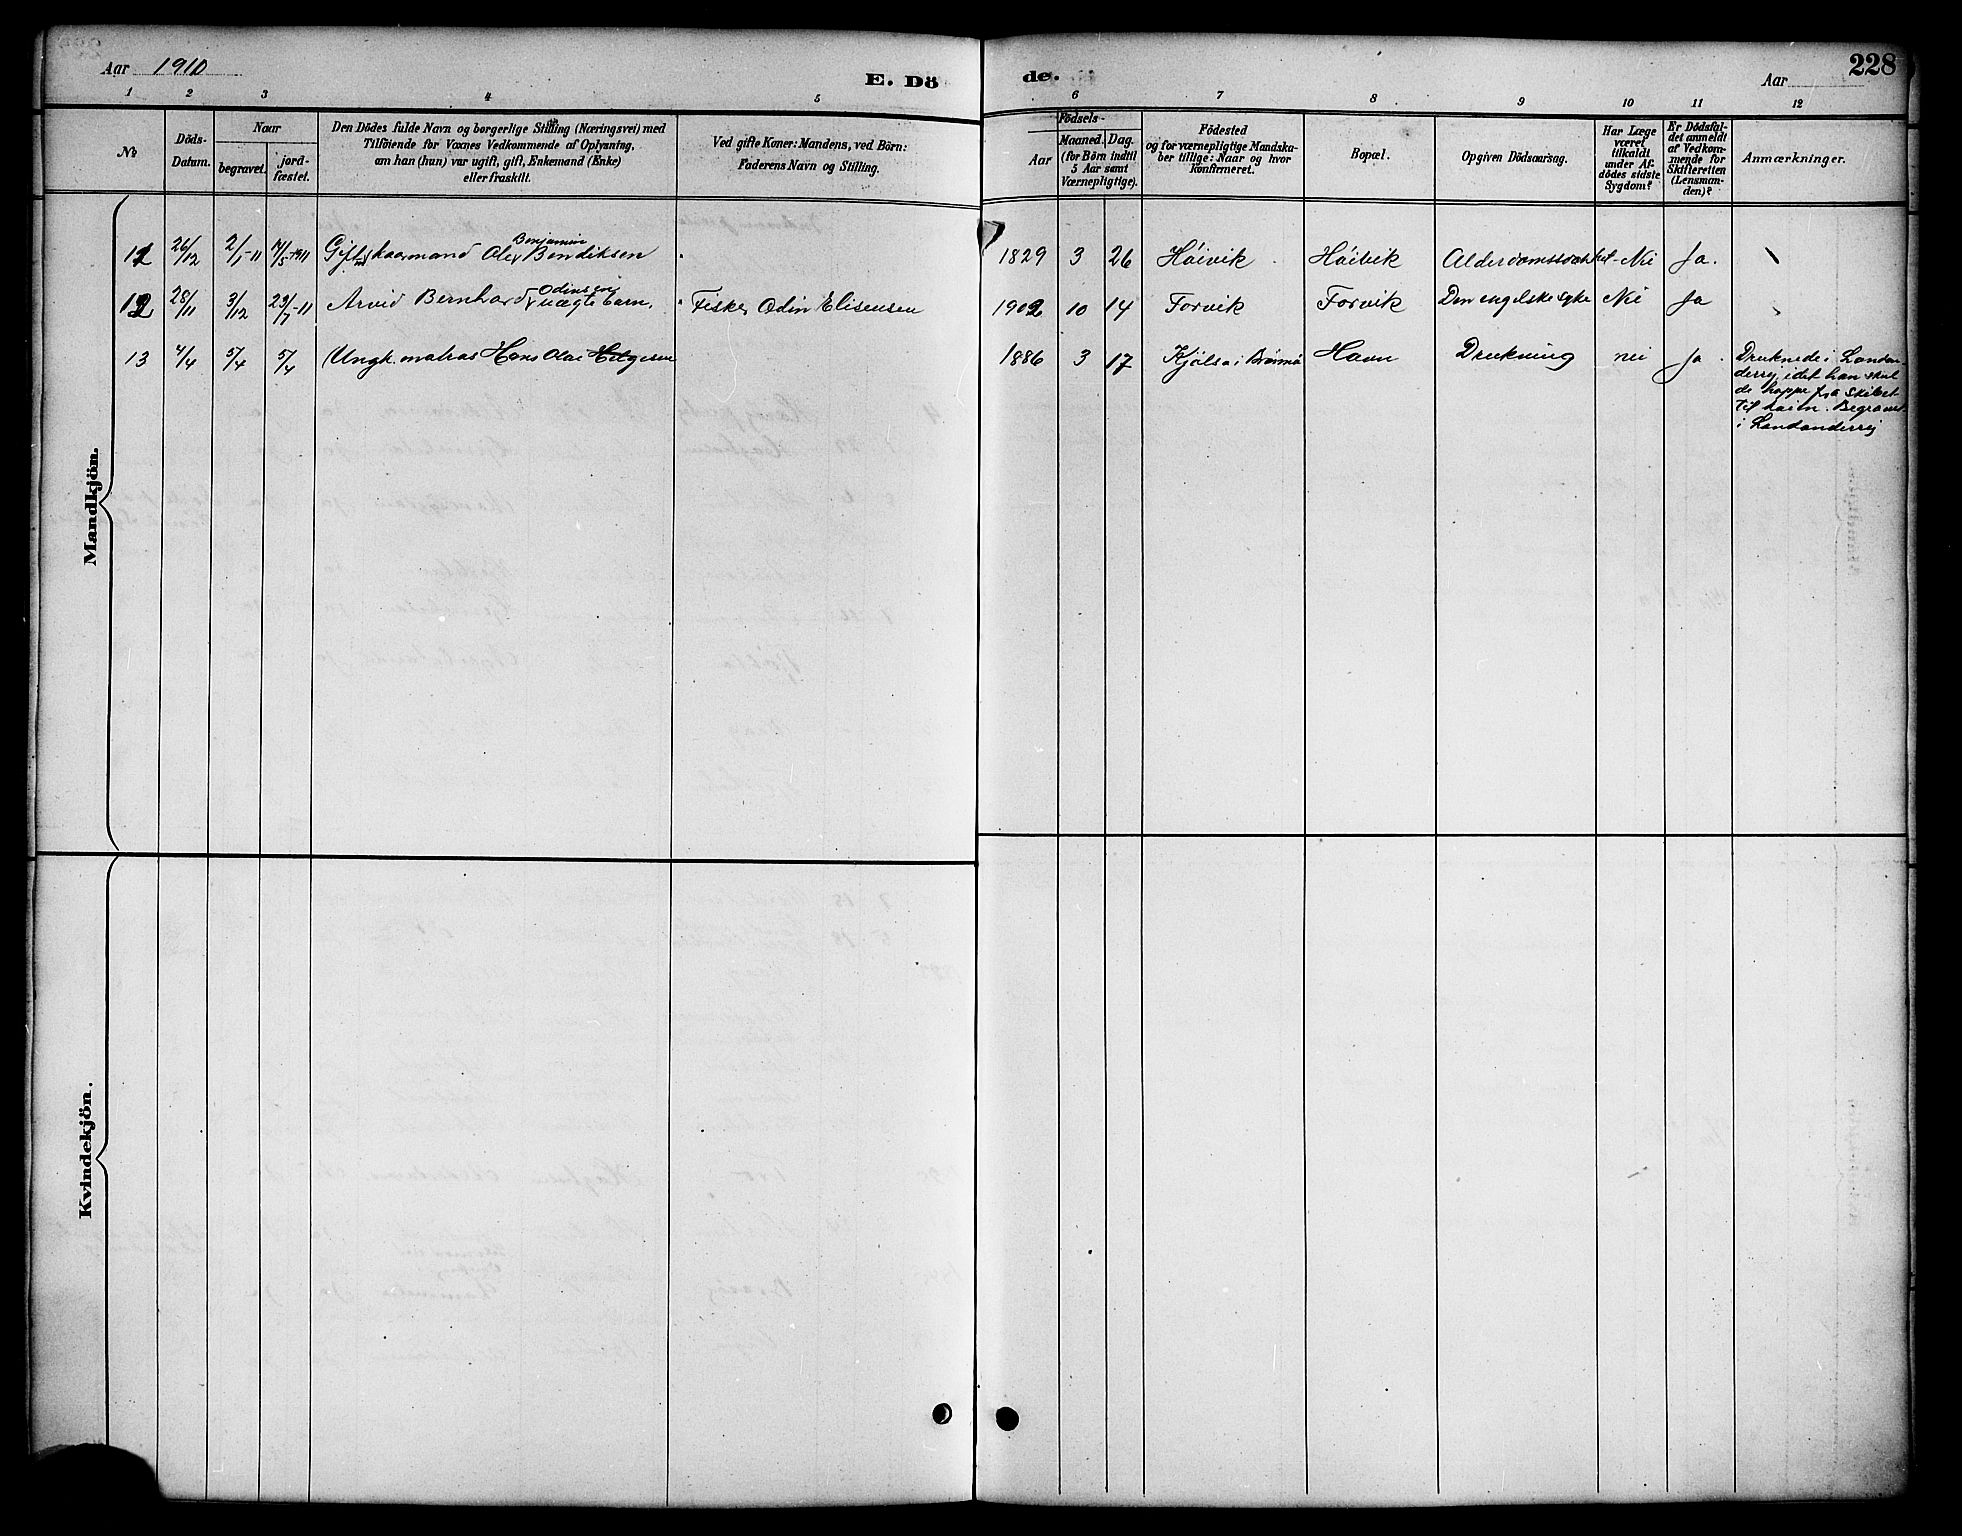 Aar 1910
E. Dö
de.
Aar
228
1 2 3 4 5 6 7 8 9 10 11 12
No
Döds-
Datum.
Naar
begravet.
jord-
fæstet.
Den Dödes fulde Navn og borgerlige Stilling (Næringsvei) med
Tilföiende for Voxnes Vedkommende af Oplysning,
om han (hun) var ugift, gift, Enkemand (Enke)
eller fraskilt.
Ved gifte Koner: Mandens, ved Börn:
Faderens Navn og Stilling.
Födsels-
Aar
Maaned. Dag.
(for Börn indtil
5 Aar samt
Værnepligtige).
Födested
og for værnepligtige Mandska-
ber tillige: Naar og hvor
konfirmeret.
Bopæl.
Opgiven Dödsaarsag.
Har Læge
været
tilkaldt
under Af-
dödes sidste
Sygdom?
Er Dödsfal-
det anmeldt
af Vedkom-
mende for
Skifteretten
(Lensman-
den)?
Anmærkninger.
Mandkjön.
Benjamin
26/12 2/1-11 4/5-1911 Gift kaarmand Ole Bendiksen 1829 3 26 Höivik Höivik Alderdomssvakhet Nei Ja.
Odinsen
12 28/11 3/12 23/7-11 Arvid Bernhard uægte barn. Fisker Odin Elisensen 1902 10 14 Forvik Forvik Den engelske syke Nei Ja
13 4/4 5/4 5/4 Ungk. matros Hans Olai Helgesen 1886 3 17 Kjölsö i Brönnö Havn Drukning nei Ja Druknede i Londen-
derry idet han skul
de hoppe fra skibet
til kaien. Begravet
i Londonderry
Kvindekjön.